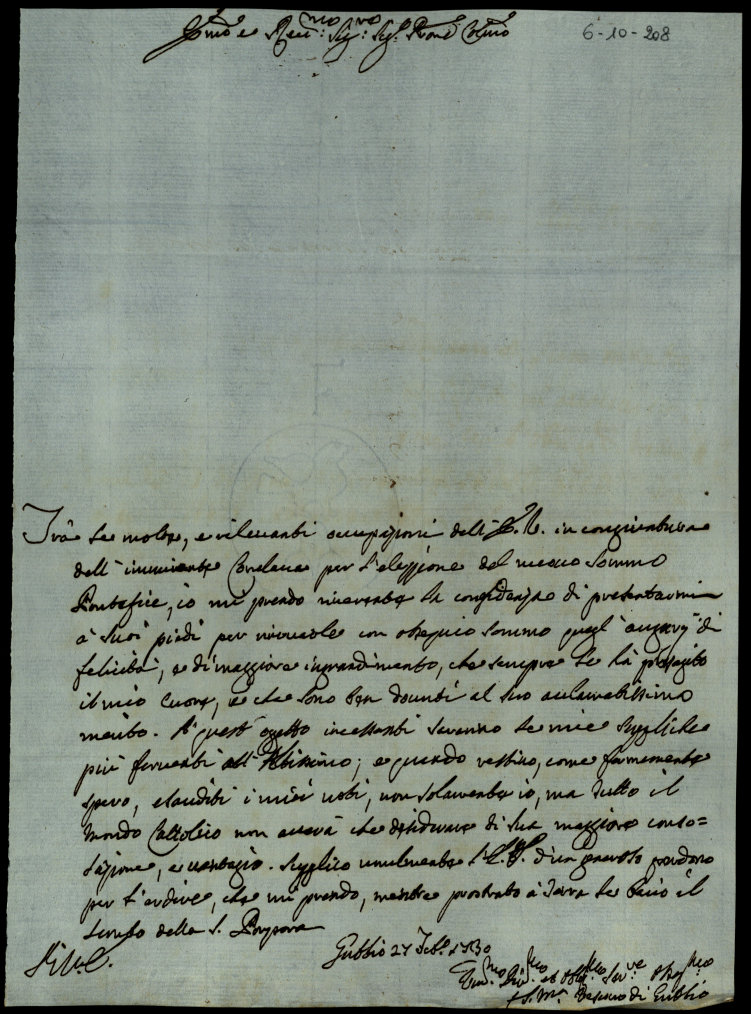 Em̃o e Reu:mo Sig:re Sig:r Prone Colmo
6-10-208
Trà le molte, e rileuanti occupazioni dell' E. V. in congiuntura
dell' imminente Conclaue per l'elezzione del nuouo Sommo
Pontefice, io mi prendo riuerente la confidenza di presentarmi
a' suoi piedi per rinouarle con ossequio sommo quegl' augurij di
felicità, e di maggiore ingrandimento, che sempre le hà presagito
il mio Cuore, e che sono ben douuti al suo acclamatissimo
merito. A quest' oggetto incessanti saranno le mie suppliche
più feruenti all' Altissimo; e quando restino, come fermamente
spero, esauditi i miei uoti, non solamente io, ma tutto il
Mondo Cattolico non auerà che desiderare di sua maggiore conso=
lazione, e uantagio. Supplico umilmente l' E. V. d'un generoso perdono
per l'ardire, che mi prendo, mentre prostrato à terra le bacio il
lembo della S. Porpora
Gubbio 27 Feb.o 1730
Di V. E.
Um:mo Diu:mo et Obl:mo Ser:re Osseq:mo
f S. M.a Vescouo di Gubbio